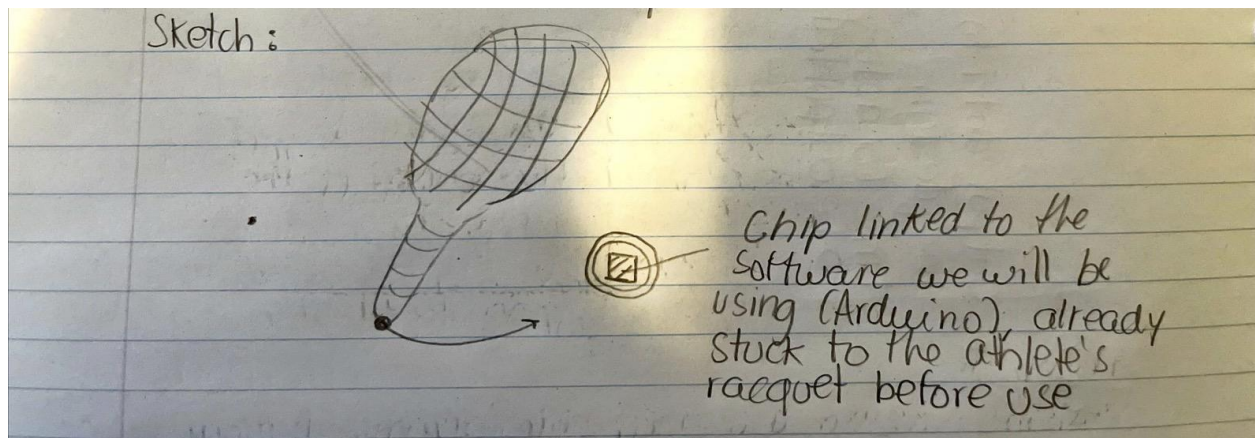 Sketch:
Chip linked to the
software we will be
using (Arduino), already
stuck to the athlete's
racquet before use